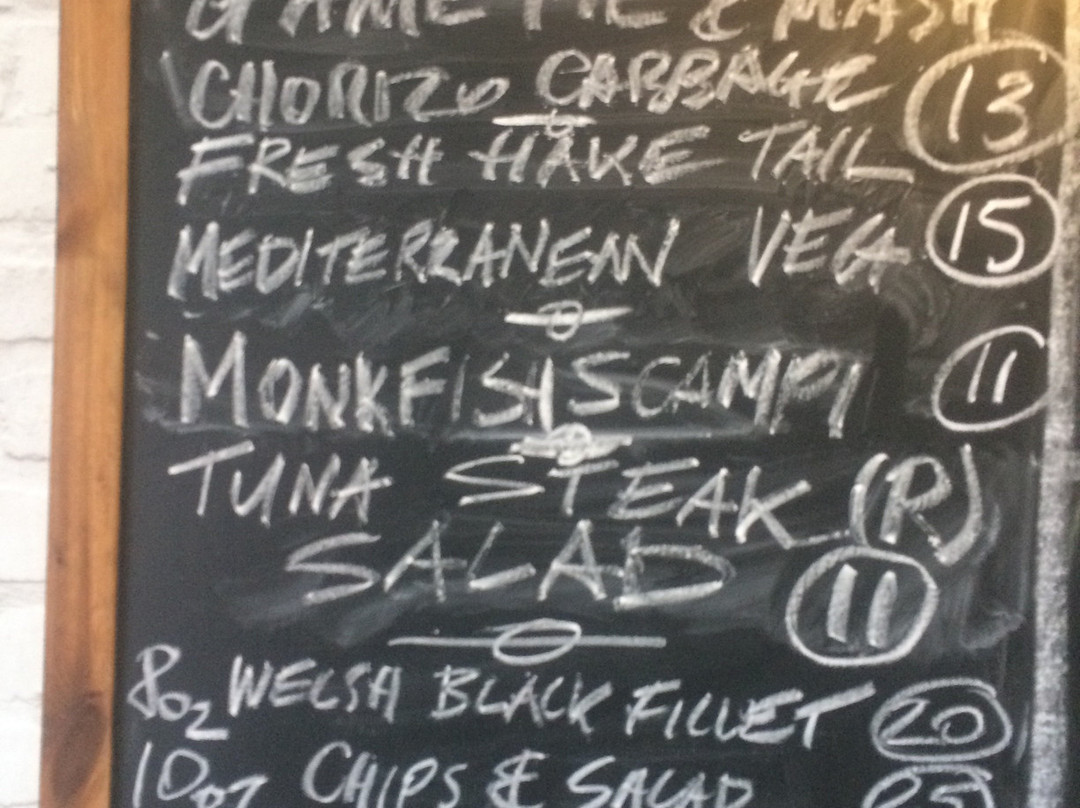 GAME PIE & MASH
CHORIZO CABBAGE 13
FRESH HAKE TAIL
MEDITERRANEAN VEG 15
MONKFISH SCAMPI 11
TUNA STEAK (R)
SALAD 11
8oz WELSH BLACK FILLET 20
10oz CHIPS & SALAD 25